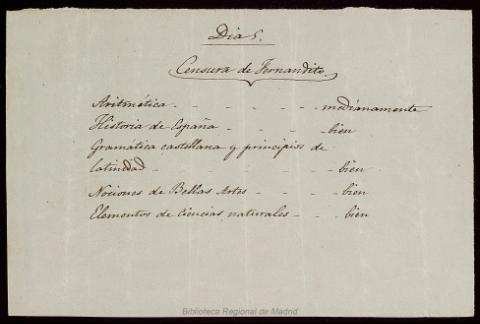 Dia 5.
Censura de Fernandito
Aritmética. - - - - - medianamente
Historia de España - - - - bien
Gramática castellana y principios de
latinidad - - - - - - bien
Nociones de Bellas Artes - - - bien
Elementos de ciencias naturales - - - bien
Biblioteca Regional de Madrid